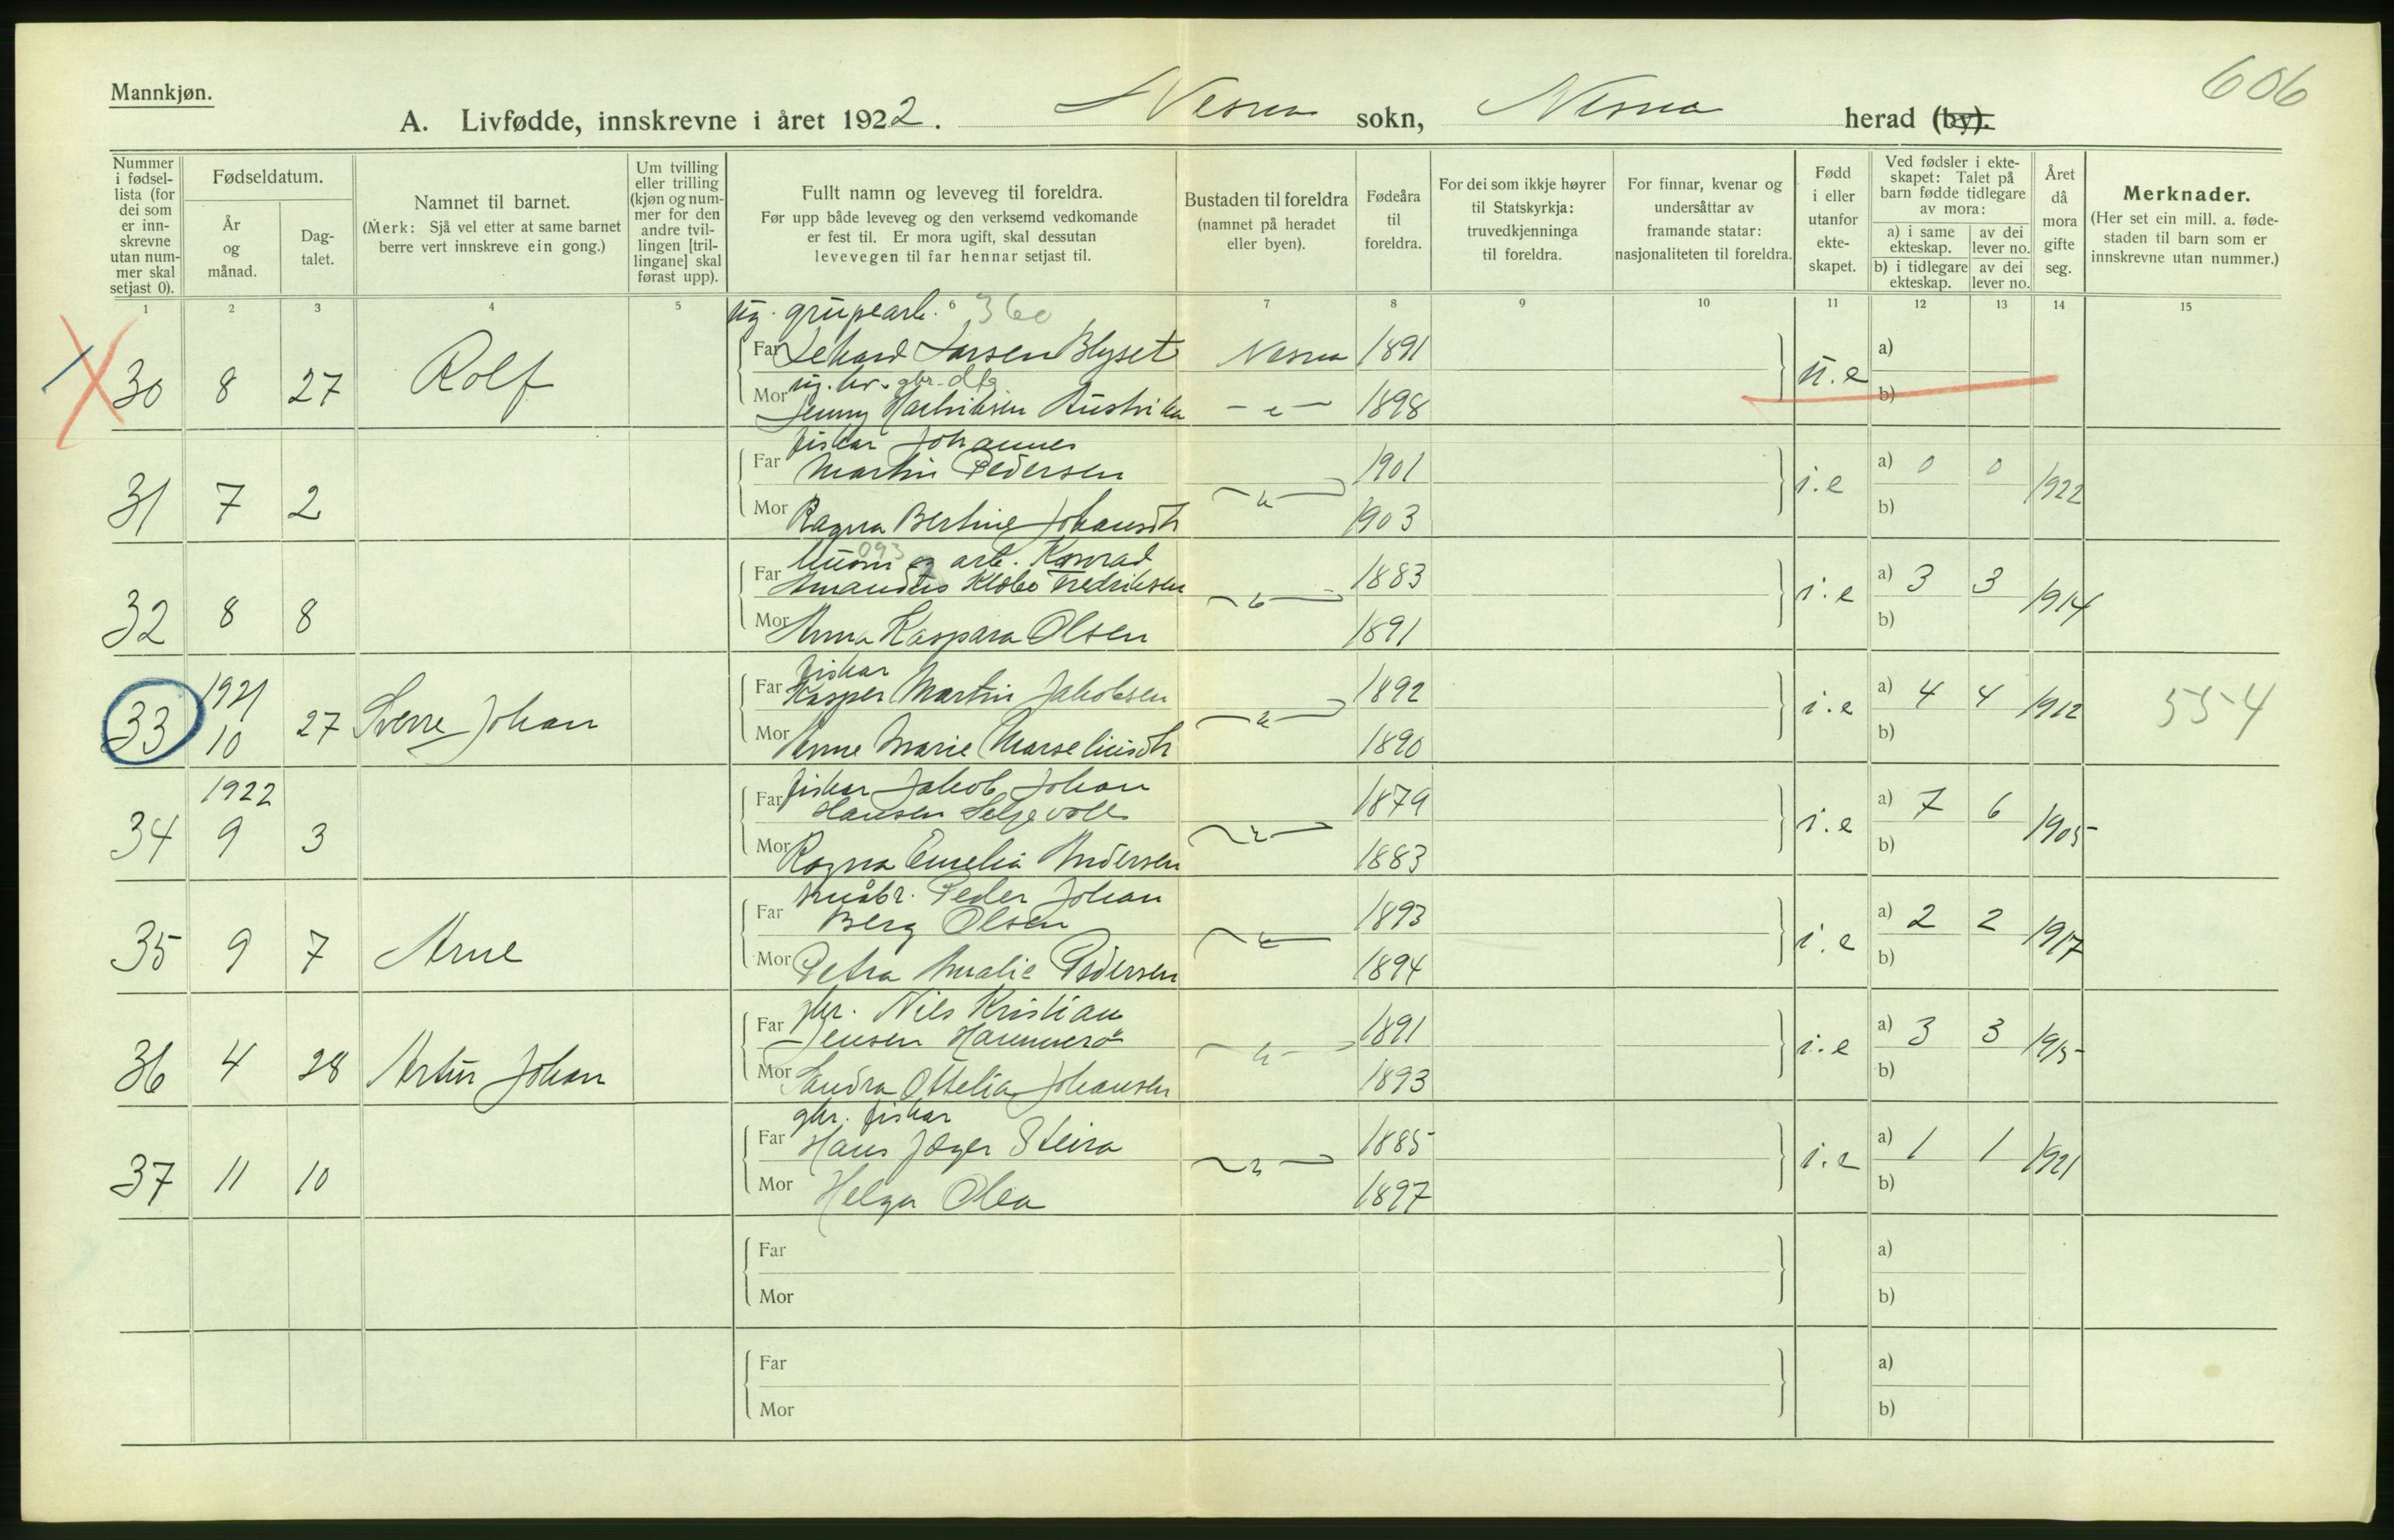 Mannkjøn.
606
A. Livfødde, innskrevne i året 1922. Nesna sokn, Nesna herad (by).
Nummer i fødsel-lista (for dei som er inn-skrevne utan num-mer skal setjast 0).
Fødseldatum.
År og månad.
Dag-talet.
Namnet til barnet.
(Merk: Sjå vel etter at same barnet berre vert innskreve ein gong.)
Um tvilling eller trilling (kjøn og num-mer for den andre tvil-lingen [tril-lingane] skal førast upp).
Fullt namn og leveveg til foreldra.
Før upp både leveveg og den verksemd vedkomande er fest til. Er mora ugift, skal dessutan levevegen til far hennar setjast til.
Bustaden til foreldra (namnet på heradet eller byen).
Fødeåra til foreldra.
For dei som ikkje høyrer til Statskyrkja: truvedkjenninga til foreldra.
For finnar, kvenar og undersåttar av framande statar: nasjonaliteten til foreldra.
Fødd i eller utanfor ekte-skapet.
Ved fødsler i ekte-skapet: Talet på barn fødde tidlegare av mora:
a) i same ekteskap.
av dei lever no.
b) i tidlegare ekteskap.
av dei lever no.
Året då mora gifte seg.
Merknader.
(Her set ein mill. a. føde-staden til barn som er innskrevne utan nummer.)
1 2 3 4 5 6 7 8 9 10 11 12 13 14 15
ug. grupearb. 360
30 8 27 Rolf Far Larsen Blyset Nesna 1891 u.e a)
Mor Jenny 1898 b)
fiskar Johannes
31 7 2 Far Martin Pedersen 1901 i.e a) 0 0 1922
Mor Ragna Bertine Johansdtr 1903 b)
093
og arb. Konrad
32 8 8 Far Amandus Fredriksen 1883 i.e a) 3 3 1914
Mor Anna Kaspara Olsen 1891 b)
fiskar
33 1921 10 27 Sverre Johan Far Kasper Martin Jakobsen 1892 i.e a) 4 4 1912 554
Mor Anne Marie Marseliusdtr 1890 b)
fiskar Jakob Johan
34 1922 9 3 Far Hansen Seljevoll 1879 i.e a) 7 6 1905
Mor Ragna Emelia Andersen 1883 b)
småbr. Peder Johan
35 9 7 Arne Far Berg Olsen 1893 i.e a) 2 2 1917
Mor Petra Amalie Pedersen 1894 b)
gbr. Nils Kristian
36 4 28 Artur Johan Far Jensen Hammerö 1891 i.e a) 3 3 1915
Mor Sandra Ottelia Johansen 1893 b)
gbr. fiskar
37 11 10 Far Hans Jæger Steira 1885 i.e a) 1 1 1921
Mor Helga Olea 1897 b)
Far a)
Mor b)
Far a)
Mor b)